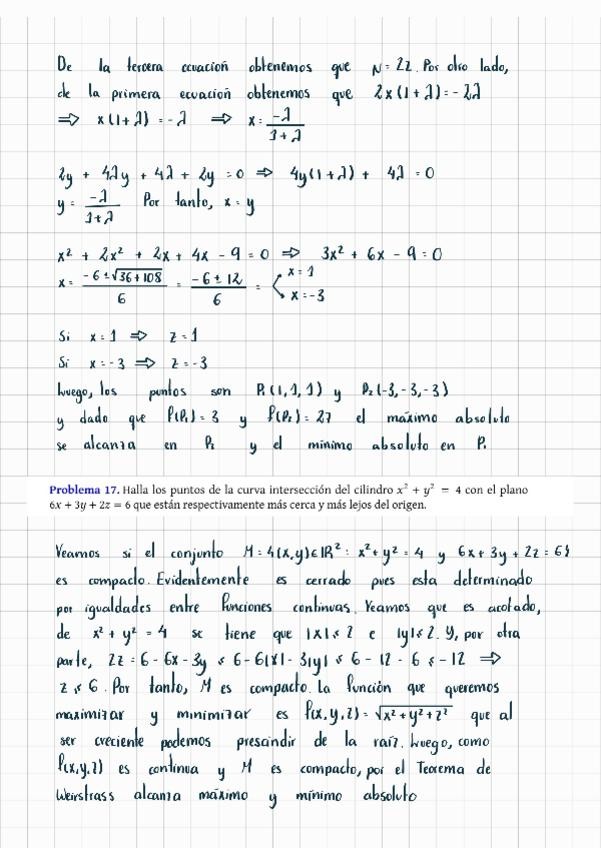 De la tercera ecuación obtenemos que N = 2z. Por otro lado,
de la primera ecuación obtenemos que 2x(1+λ) = -2λ
⇒ x(1+λ) = -λ ⇒ x = -λ/(1+λ)
2y + 4λy + 4λ + 2y = 0 ⇒ 4y(1+λ) + 4λ = 0
y = -λ/(1+λ) Por tanto, x = y
x² + 2x² + 2x + 4x - 9 = 0 ⇒ 3x² + 6x - 9 = 0
x = (-6 ± √(36+108))/6 = (-6 ± 12)/6 = < x = 1
x = -3
Si x = 1 ⇒ z = 1
Si x = -3 ⇒ z = -3
Luego, los puntos son P₁(1,1,1) y P₂(-3,-3,-3)
y dado que f(P₁) = 3 y f(P₂) = 27 el máximo absoluto
se alcanza en P₂ y el mínimo absoluto en P₁
Problema 17. Halla los puntos de la curva intersección del cilindro x² + y² = 4 con el plano
6x + 3y + 2z = 6 que están respectivamente más cerca y más lejos del origen.
Veamos si el conjunto M = {(x,y) ∈ ℝ² : x² + y² = 4 y 6x + 3y + 2z = 6}
es compacto. Evidentemente es cerrado pues esta determinado
por igualdades entre funciones continuas. Veamos que es acotado,
de x² + y² = 4 se tiene que |x| ≤ 2 e |y| ≤ 2. Y, por otra
parte, 2z = 6 - 6x - 3y ≤ 6 - 6|x| - 3|y| ≤ 6 - 12 - 6 ≤ -12 ⇒
z ≤ 6. Por tanto, M es compacto. La función que queremos
maximizar y minimizar es f(x,y,z) = √(x² + y² + z²) que al
ser creciente podemos prescindir de la raíz. Luego, como
f(x,y,z) es continua y M es compacto, por el Teorema de
Weirstrass alcanza máximo y mínimo absoluto